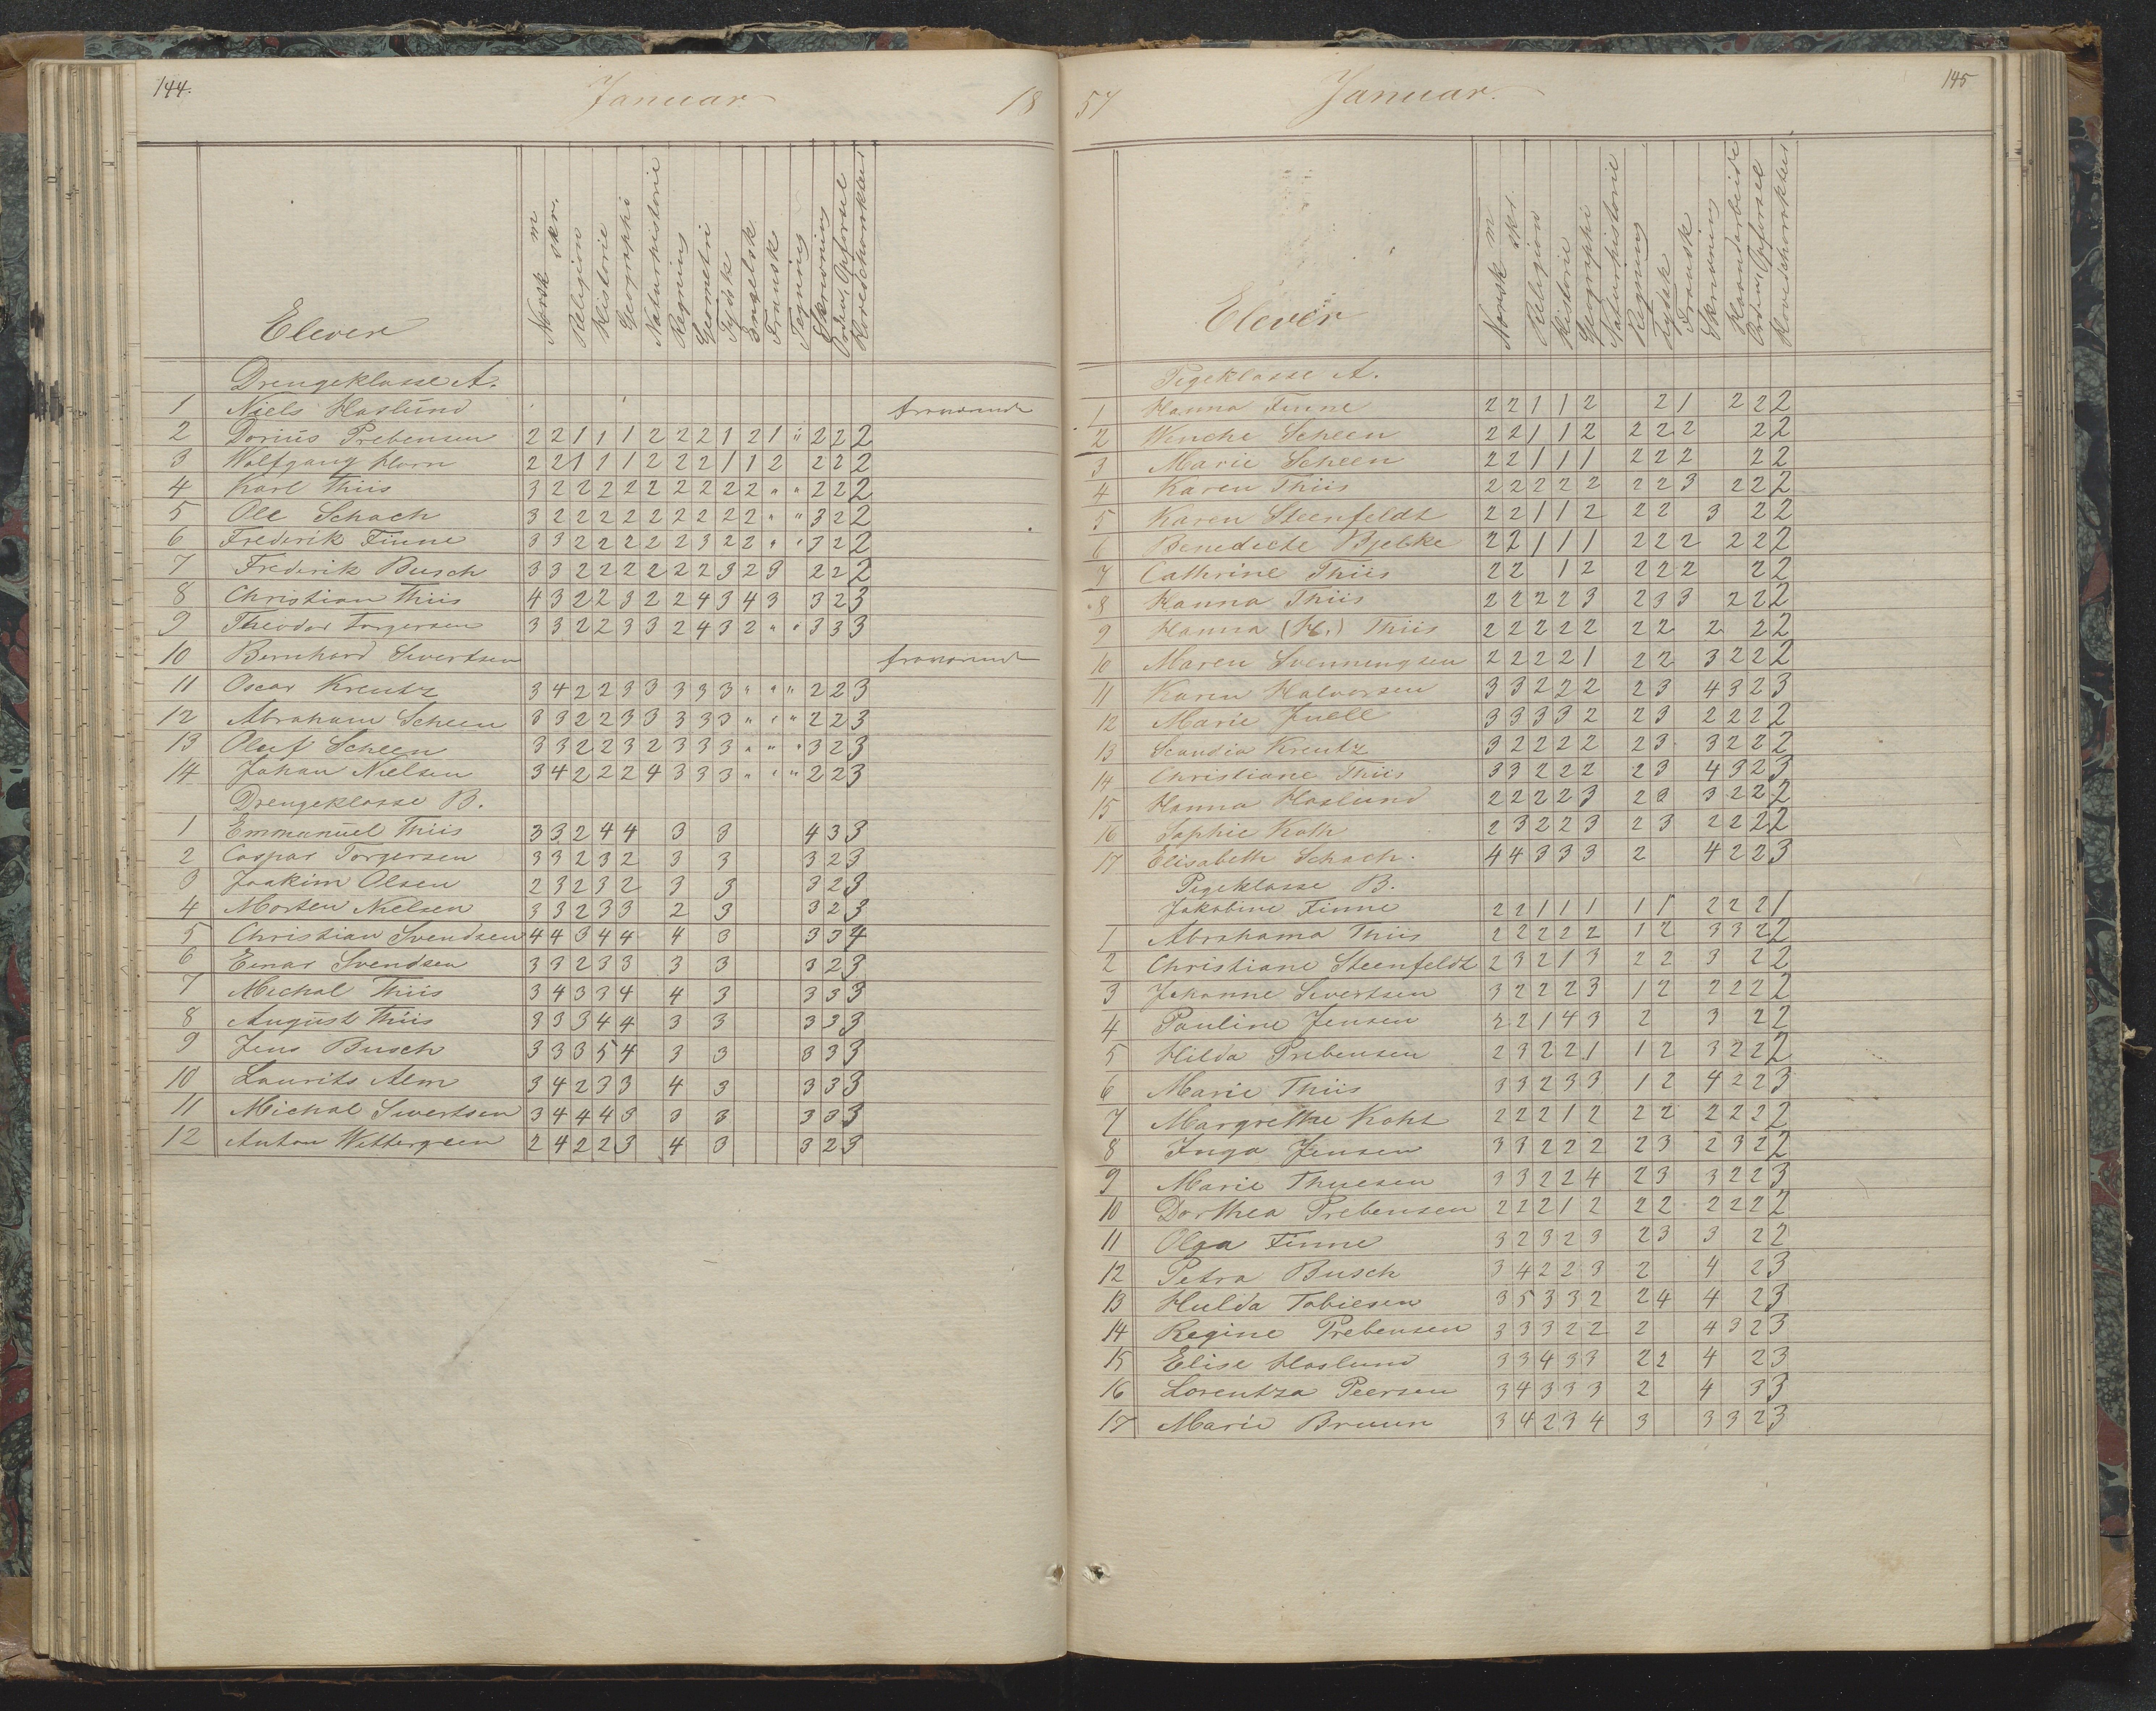 144.
Januar
18
Elever
Norsk m
skr.
Religion
Historie
Geographi
Naturhistorie
Regning
Geometri
Tydsk
Engelsk
Fransk
Tegning
Skrivning
Orden, Opførsel
Hovedcharakteer
Drengeklasse A.
1 Niels Haslund fraværende
2 Dorius Prebensen 2 2 1 1 1 2 2 2 1 2 1 " 2 2 2
3 Wolfgang Horn 2 2 1 1 1 2 2 2 1 1 2 2 2 2
4 Karl Thiis 3 2 2 2 2 2 2 2 2 2 " " 2 2 2
5 Ole Schach 3 2 2 2 2 2 2 2 2 2 " " 3 2 2
6 Frederik Finne 3 3 2 2 2 2 2 3 2 2 " " 3 2 2
7 Frederik Busch 3 3 2 2 2 2 2 2 3 2 3 2 2 2
8 Christian Thiis 4 3 2 2 3 2 2 4 3 4 3 3 2 3
9 Theodor Torgersen 3 3 2 2 3 3 2 4 3 2 " " 3 3 3
10 Bernhard Sivertsen fraværende
11 Oscar Kreutz 3 4 2 2 3 3 3 3 3 " " " 2 2 3
12 Abraham Scheen 3 3 2 2 3 3 3 3 3 " " " 2 2 3
13 Oluf Scheen 3 3 2 2 3 2 3 3 3 " " " 3 2 3
14 Johan Nielsen 3 4 2 2 2 4 3 3 3 " " " 2 2 3
Drengeklasse B.
1 Emmanuel Thiis 3 3 2 4 4 3 3 4 3 3
2 Caspar Torgersen 3 3 2 3 2 3 3 3 2 3
3 Joakim Olsen 2 3 2 3 2 3 3 3 2 3
4 Morten Nielsen 3 3 2 3 3 2 3 3 2 3
5 Christian Svendsen 4 4 3 4 4 4 3 3 3 4
6 Einar Svendsen 3 3 2 3 3 3 3 3 2 3
7 Michal Thiis 3 4 3 3 4 4 3 3 3 3
8 August Thiis 3 3 3 4 4 3 3 3 3 3
9 Jens Busch 3 3 3 5 4 3 3 3 3 3
10 Laurits Alm 3 4 2 3 3 4 3 3 3 3
11 Michal Sivertsen 3 4 4 4 3 3 3 3 3 3
12 Anton Wettergreen 2 4 2 2 3 4 3 3 2 3
57
Januar.
145
Elever
Norsk m
skr.
Religion
Historie
Geographi
Naturhistorie
Regning
Tydsk
Fransk
Skrivning
Haandarbeide
Orden, Opførsel
Hovedcharakteer
Pigeklasse A.
1 Hanna Finne 2 2 1 1 2 2 1 2 2 2
2 Wenche Scheen 2 2 1 1 2 2 2 2 2 2
3 Marie Scheen 2 2 1 1 1 2 2 2 2 2
4 Karen Thiis 2 2 2 2 2 2 2 3 2 2 2
5 Karen Steenfeldt 2 2 1 1 2 2 2 3 2 2
6 Benedicte Bjelke 2 2 1 1 1 2 2 2 2 2 2
7 Cathrine Thiis 2 2 1 2 2 2 2 2 2
8 Hanna Thiis 2 2 2 2 3 2 3 3 2 2 2
9 Hanna (H.) Thiis 2 2 2 2 2 2 2 2 2 2
10 Maren Svenningsen 2 2 2 2 1 2 2 3 2 2 2
11 Karen Halvorsen 3 3 2 2 2 2 3 4 3 2 3
12 Marie Juell 3 3 3 3 2 2 3 2 2 2 2
13 Scandia Kreutz 3 2 2 2 2 2 3 3 2 2 2
14 Christiane Thiis 3 3 2 2 2 2 3 4 3 2 3
15 Hanna Haslund 2 2 2 2 3 2 3 3 2 2 2
16 Sophie Koth 2 3 2 2 3 2 3 2 2 2 2
17 Elisabeth Schach. 4 4 3 3 3 2 4 2 2 3
Pigeklasse B.
Jakobine Finne 2 2 1 1 1 1 1 2 2 2 1
1 Abrahama Thiis 2 2 2 2 2 1 2 3 3 2 2
2 Christiane Steenfeldt 2 3 2 1 3 2 2 3 2 2
3 Johanne Sivertsen 3 2 2 2 3 1 2 2 2 2 2
4 Pauline Jensen 2 2 1 4 3 2 3 2 2
5 Hilda Prebensen 2 3 2 2 1 1 2 3 2 2 2
6 Marie Thiis 3 3 2 3 3 1 2 4 2 2 3
7 Margrethe Koht 2 2 2 1 2 2 2 2 2 2 2
8 Inga Jensen 3 3 2 2 2 2 3 2 3 2 2
9 Marie Thuesen 3 3 2 2 4 2 3 3 2 2 3
10 Dorthea Prebensen 2 2 2 1 2 2 2 2 2 2 2
11 Olga Finne 3 2 3 2 3 2 3 3 2 2
12 Petra Busch 3 4 2 2 3 2 4 2 3
13 Hulda Tobiesen 3 5 3 3 2 2 4 4 2 3
14 Regine Prebensen 3 3 3 2 2 2 4 3 2 3
15 Elise Haslund 3 3 4 3 3 2 2 4 2 3
16 Lorentza Peersen 3 4 3 3 3 2 4 3 3
17 Marie Bruun 3 4 2 3 4 3 3 3 2 3